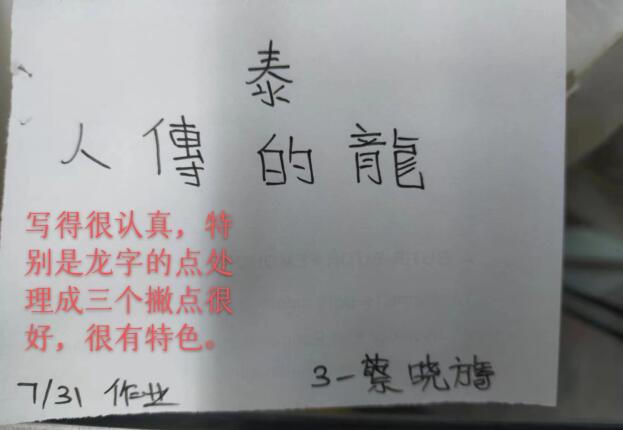 泰
人傳的龍
写得很认真，特
别是龙字的点处
理成三个撇点很
好，很有特色。
7/31 作业
3-蔡晓旖